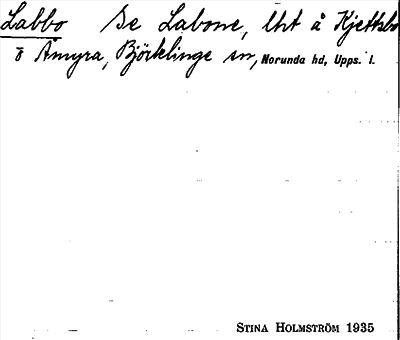 Labbo Se Labone, lht å Kjettsbo
ö Åmyra, Björklinge sn, Norunda hd, Upps. l.
STINA HOLMSTRÖM 1935